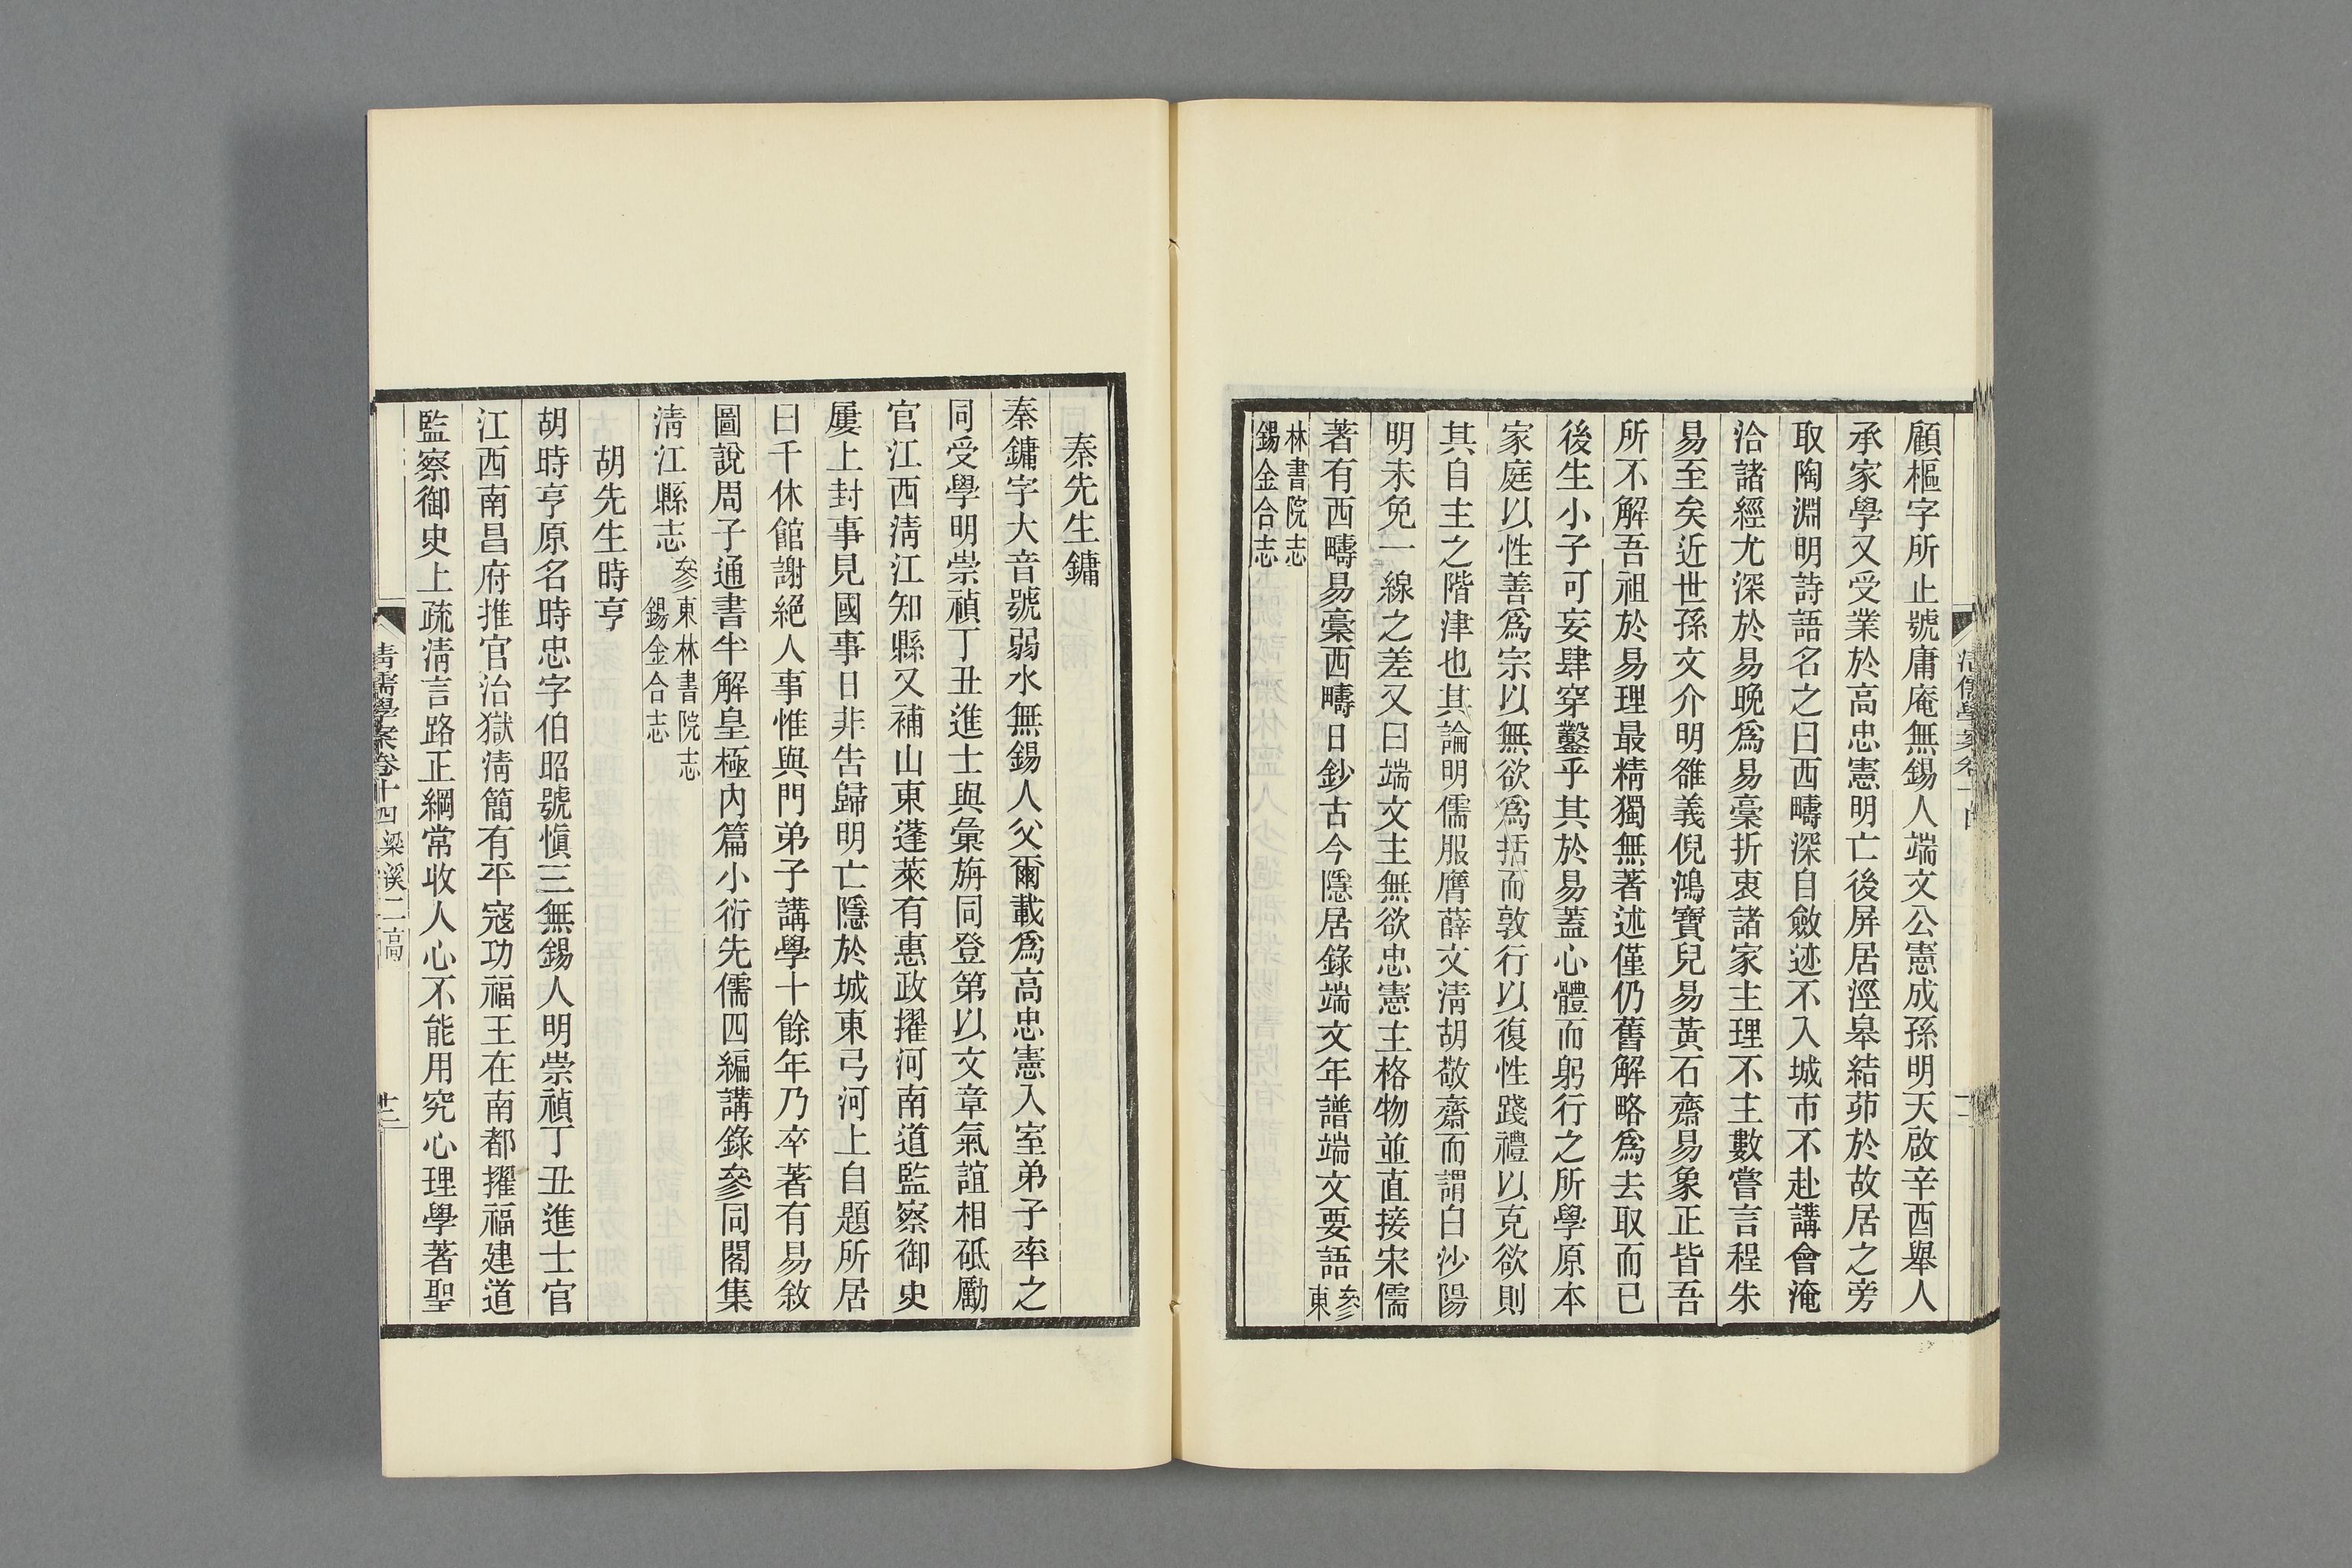 顧樞字所止號庸庵無錫人端文公憲成孫明天啟辛酉舉人
承家學又受業於高忠憲明亡後屏居涇皋結茆於故居之旁
取陶淵明詩語名之曰西疇深自斂迹不入城市不赴講會淹
洽諸經尤深於易晚爲易稾折衷諸家主理不主數嘗言程朱
易至矣近世孫文介明雒義倪鴻寶兒易黃石齋易象正皆吾
所不解吾祖於易理最精獨無著述僅仍舊解略爲去取而已
後生小子可妄肆穿鑿乎其於易蓋心體而躬行之所學原本
家庭以性善爲宗以無欲爲括而敦行以復性踐禮以克欲則
其自主之階津也其論明儒服膺薛文淸胡敬齋而謂白沙陽
明未免一線之差又曰端文主無欲忠憲主格物並直接宋儒
著有西疇易稾西疇日鈔古今隱居錄端文年譜端文要語參東
林書院志
錫金合志
秦先生鏞
秦鏞字大音號弱水無錫人父爾載爲高忠憲入室弟子率之
同受學明崇禎丁丑進士與彙旃同登第以文章氣誼相砥勵
官江西淸江知縣又補山東蓬萊有惠政擢河南道監察御史
屢上封事見國事日非告歸明亡隱於城東弓河上自題所居
曰千休館謝絕人事惟與門弟子講學十餘年乃卒著有易敘
圖說周子通書半解皇極內篇小衍先儒四編講錄參同閣集
淸江縣志參東林書院志
錫金合志
胡先生時亨
胡時亨原名時忠字伯昭號愼三無錫人明崇禎丁丑進士官
江西南昌府推官治獄淸簡有平寇功福王在南都擢福建道
監察御史上疏淸言路正綱常收人心不能用究心理學著聖
淸儒學案卷十四 梁溪二高